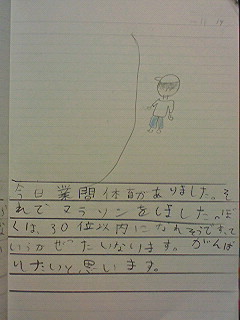 今日業間体育がありました。そ
れでマラソンをしました。ぼ
くは、30位以内になれそうです。って
いうかぜったいなります。がんば
りたいと思います。